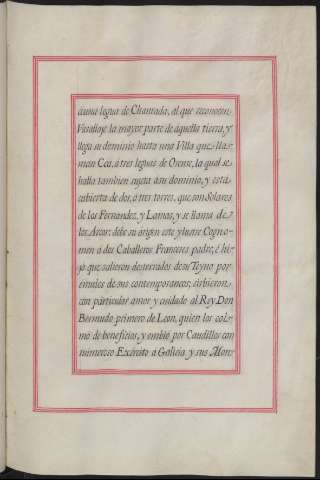 auna legua de Chantada, al que reconocen
Vasallaje la mayor parte de aquella tierra, y
llega su dominio hasta una Villa que lla-
man Cea, á tres leguas de Orense, la qual se
halla tambien sujeta asu dominio, y está
cubierta de dos, ó tres torres, que son Solares
de los Fernandez, y Lamas, y se llama de
los Arcos: debe su origen este y lustre Cogno-
men á dos Caballeros Franceses padre, é hi-
jo que salieron desterrados de su Reyno por
émulos de sus contemporaneos, sirbieron
con particular amor y cuidado al Rey Don
Bermudo primero de Leon, quien los col-
mó de beneficios, y embió por Caudillos con
numeroso Exército a Galicia y sus Mon-